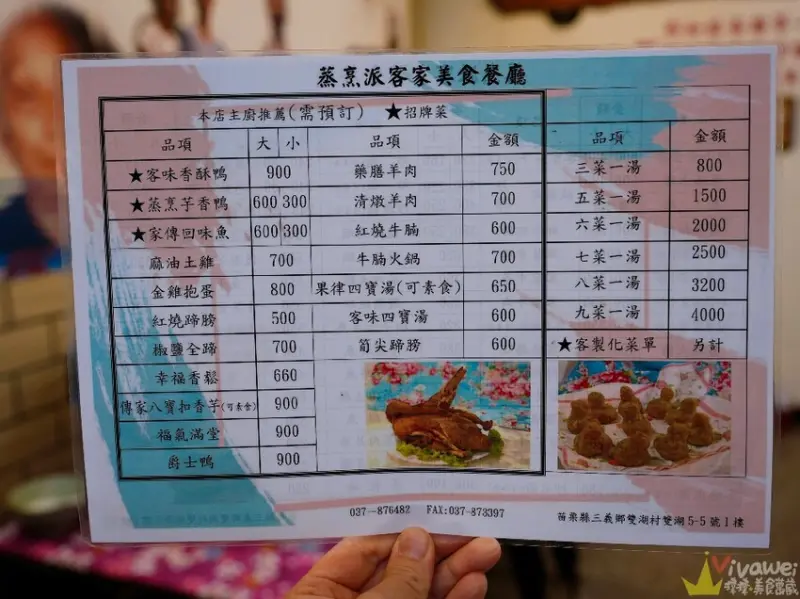 蒸烹派客家美食餐廳
本店主廚推薦(需預訂) ★招牌菜
品項 大 小 品項 金額 品項 金額
★客味香酥鴨 900 藥膳羊肉 750 三菜一湯 800
★蒸烹芋香鴨 600 300 清燉羊肉 700 五菜一湯 1500
★家傳回味魚 600 300 紅燒牛腩 600 六菜一湯 2000
麻油土雞 700 牛腩火鍋 700 七菜一湯 2500
金雞抱蛋 800 果律四寶湯(可素食) 650 八菜一湯 3200
紅燒蹄膀 500 客味四寶湯 600 九菜一湯 4000
椒鹽全蹄 700 筍尖蹄膀 600 ★客製化菜單 另計
幸福香鬆 660
傳家八寶扣香芋(可素食) 900
福氣滿堂 900
爵士鴨 900
037-876482 FAX:037-873397 苗栗縣三義鄉雙湖村雙湖5-5號1樓
Vivawei